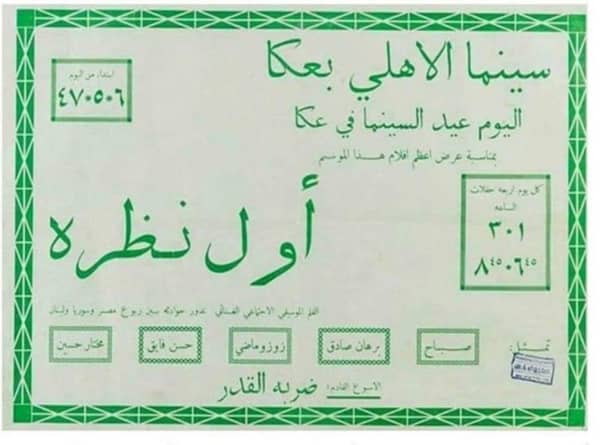 سينما الاهلي بعكا
ابتداء من اليوم
٤٧٠٥٠٦
اليوم عيد السينما في عكا
بمناسبة عرض اعظم افلام هذا الموسم
كل يوم اربعة حفلات
الساعه
٣٠١
٨٤٥٠٦٤٥
أول نظره
الفلم الموسيقي الاجتماعي الغنائي تدور حوادثه بين ربوع مصر وسوريا ولبنان
تمثيل:
صباح
برهان صادق
زوزو ماضي
حسن فايق
مختار حسين
الاسبوع القادم: ضربة القدر